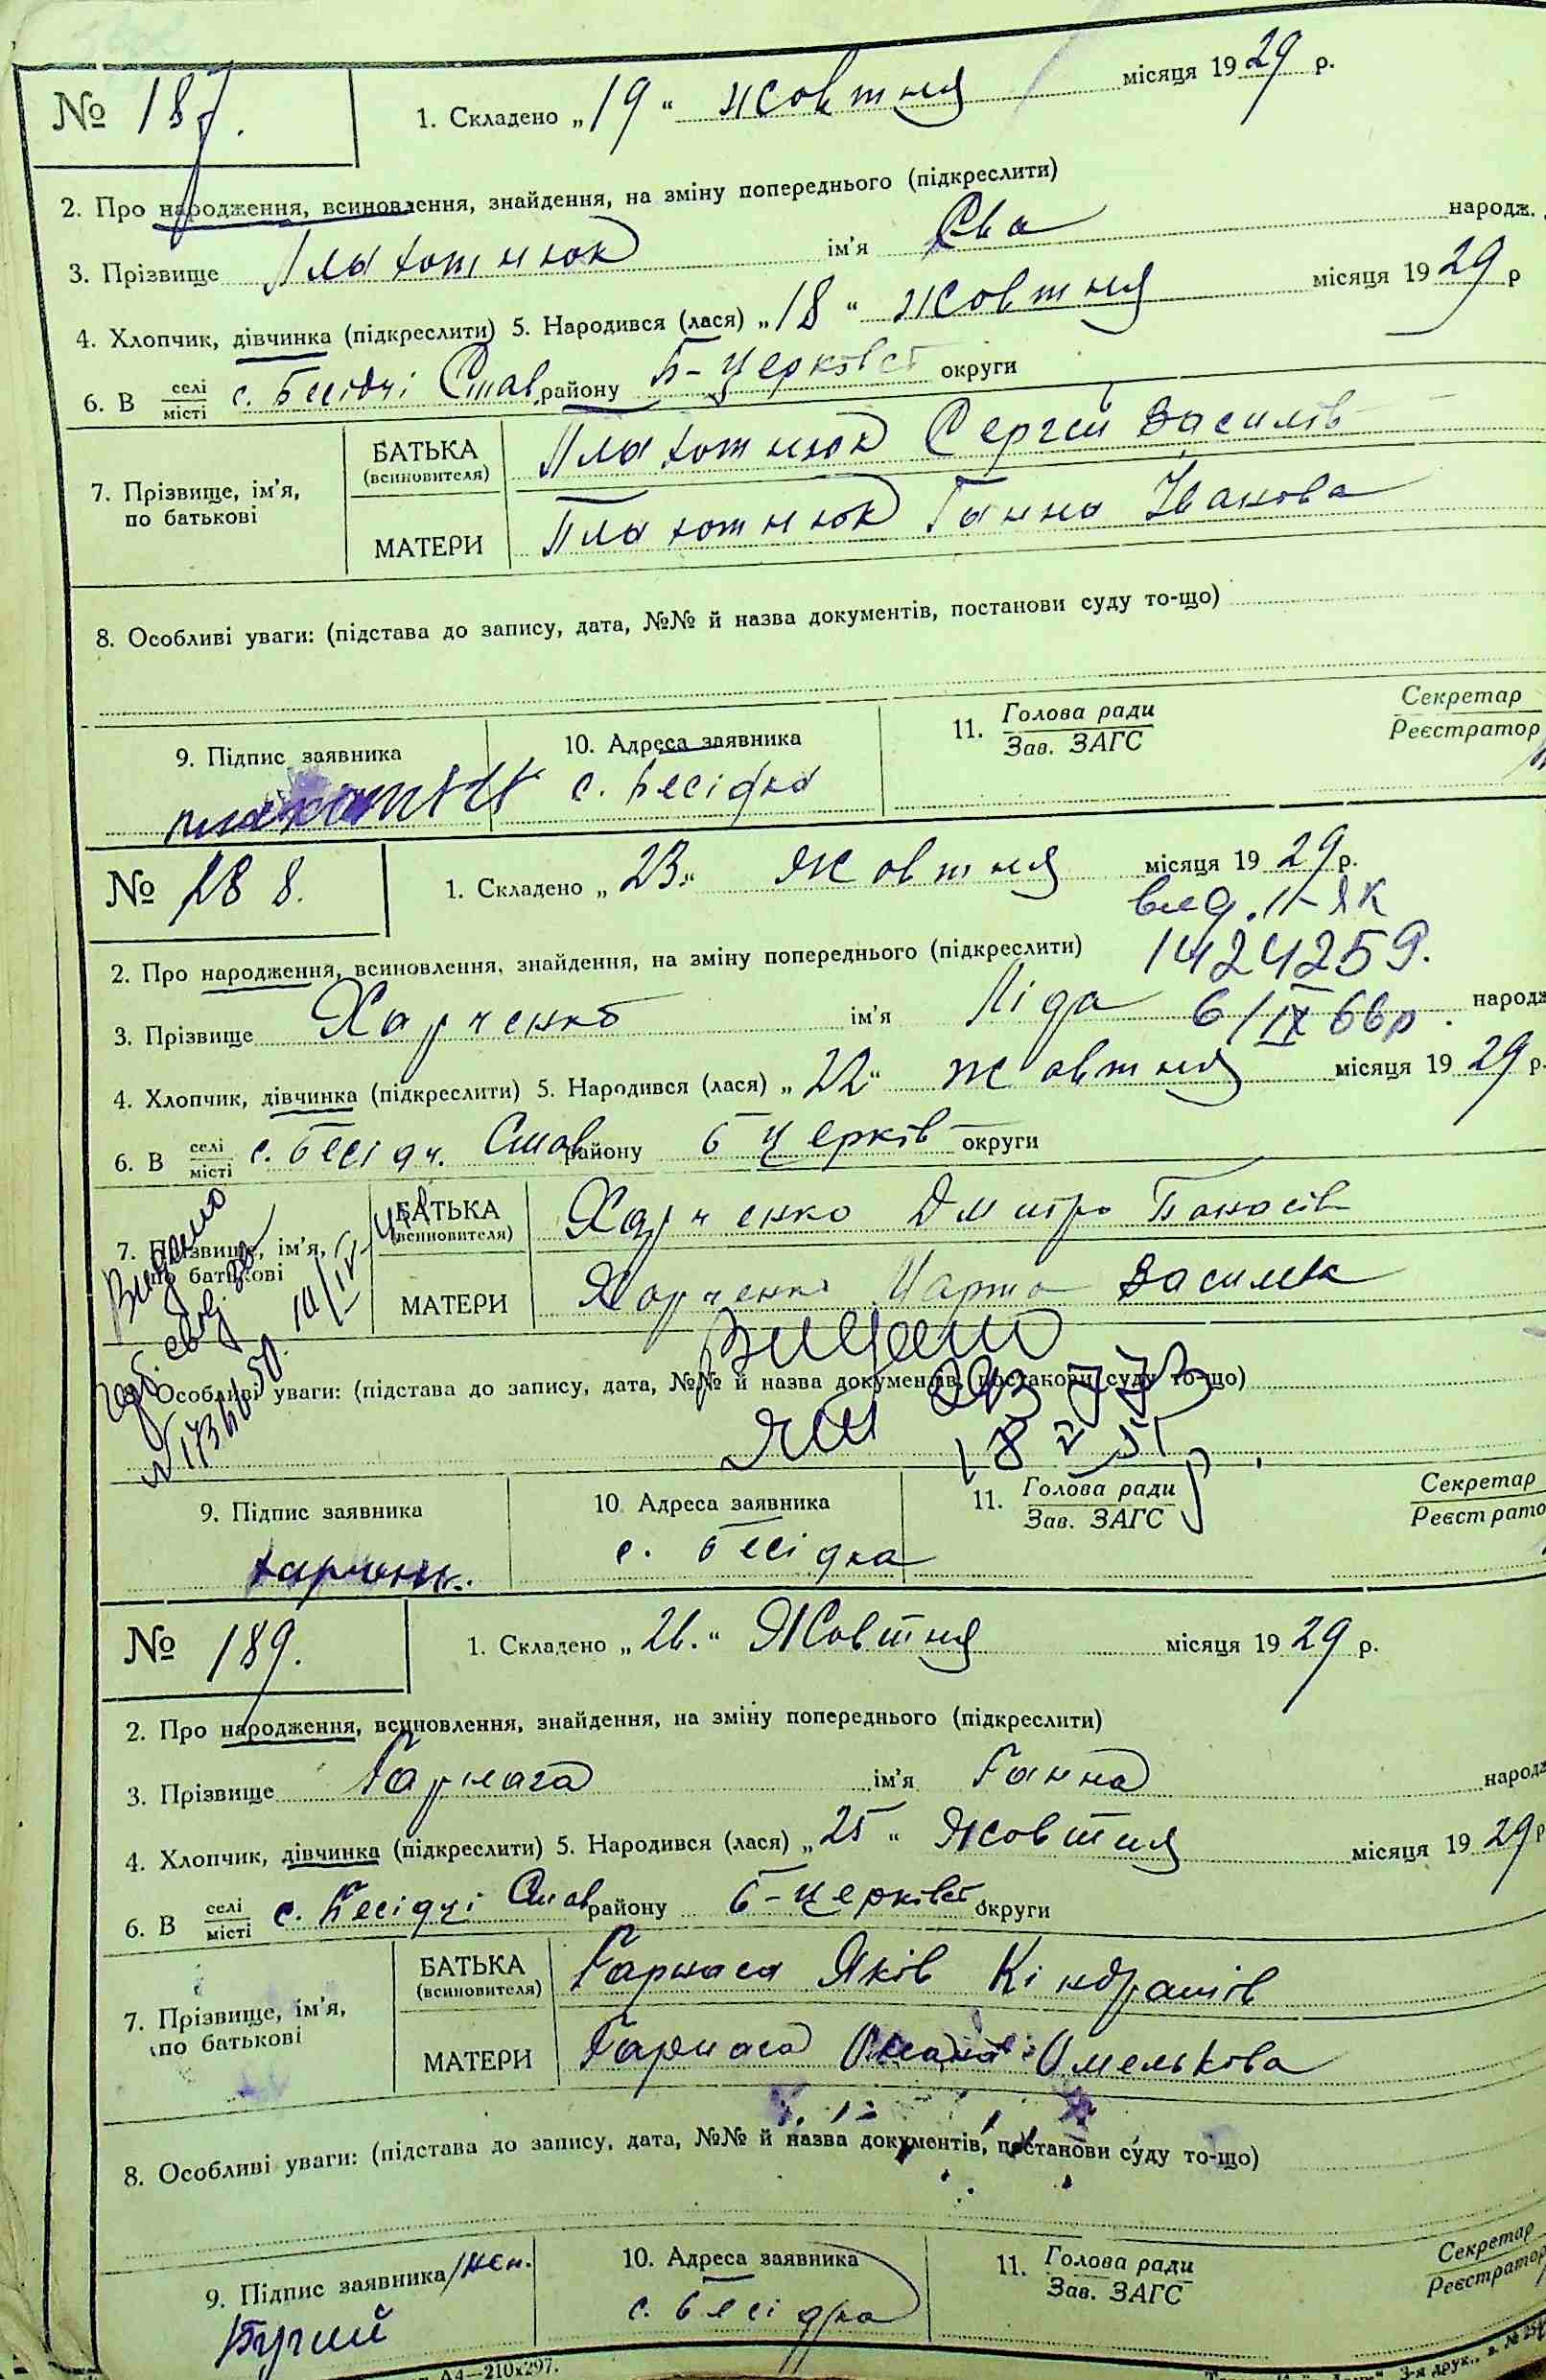 № 187.
1. Складено „19“ жовтня місяця 1929 р.
2. Про народження, всиновлення, знайдення, на зміну попереднього (підкреслити)
3. Прізвище Плахотнюк ім'я Єва народж.
4. Хлопчик, дівчинка (підкреслити) 5. Народився (лася) „18“ жовтня місяця 1929 р
6. В селі місті с. Бесідці Став району Б-Церківс округи
7. Прізвище, ім'я, по батькові
БАТЬКА (всиновителя) Плахотнюк Сергей Василів
МАТЕРИ Плахотнюк Ганна Іванова
8. Особливі уваги: (підстава до запису, дата, №№ й назва документів, постанови суду то-що)
9. Підпис заявника
10. Адреса заявника
11. Голова ради Зав. ЗАГС
Секретар Реєстратор
с. Бесідка
№ 188.
1. Складено „23“ жовтня місяця 1929 р.
вид. II-ЯК
1424259.
6/IX 66р.
2. Про народження, всиновлення, знайдення, на зміну попереднього (підкреслити)
3. Прізвище Харченко ім'я Ліда народж
4. Хлопчик, дівчинка (підкреслити) 5. Народився (лася) „22“ жовтня місяця 1929 р.
6. В селі місті с. Бесідч. Став району Б Церків округи
7. Прізвище, ім'я, по батькові
БАТЬКА (всиновителя) Харченко Дмитро Панасів
МАТЕРИ Харченко Марта Василів
Видано
8. Особливі уваги: (підстава до запису, дата, №№ й назва документів, постанови суду то-що)
9. Підпис заявника
10 Адреса заявника
11. Голова ради Зав. ЗАГС
Секретар Реєстрато
Харченк.
с. Бесідка
№ 189.
1. Складено „26.“ Жовтня місяця 1929 р.
2. Про народження, всиновлення, знайдення, на зміну попереднього (підкреслити)
3. Прізвище Ганна
4. Хлопчик, дівчинка (підкреслити) 5. Народився (лася) „25“ Жовтня місяця 1929 р
6. В селі місті с. Бесідці Став району Б-Церківс округи
7. Прізвище, ім'я, по батькові
БАТЬКА (всиновителя) Яків Кіндратів
МАТЕРИ Омелькова
8. Особливі уваги: (підстава до запису, дата, №№ й назва документів, постанови суду то-що)
9. Підпис заявника
10. Адреса заявника
11. Голова ради Зав. ЗАГС
Секретар Реєстратор
с. Бесідка
А4—210х297.